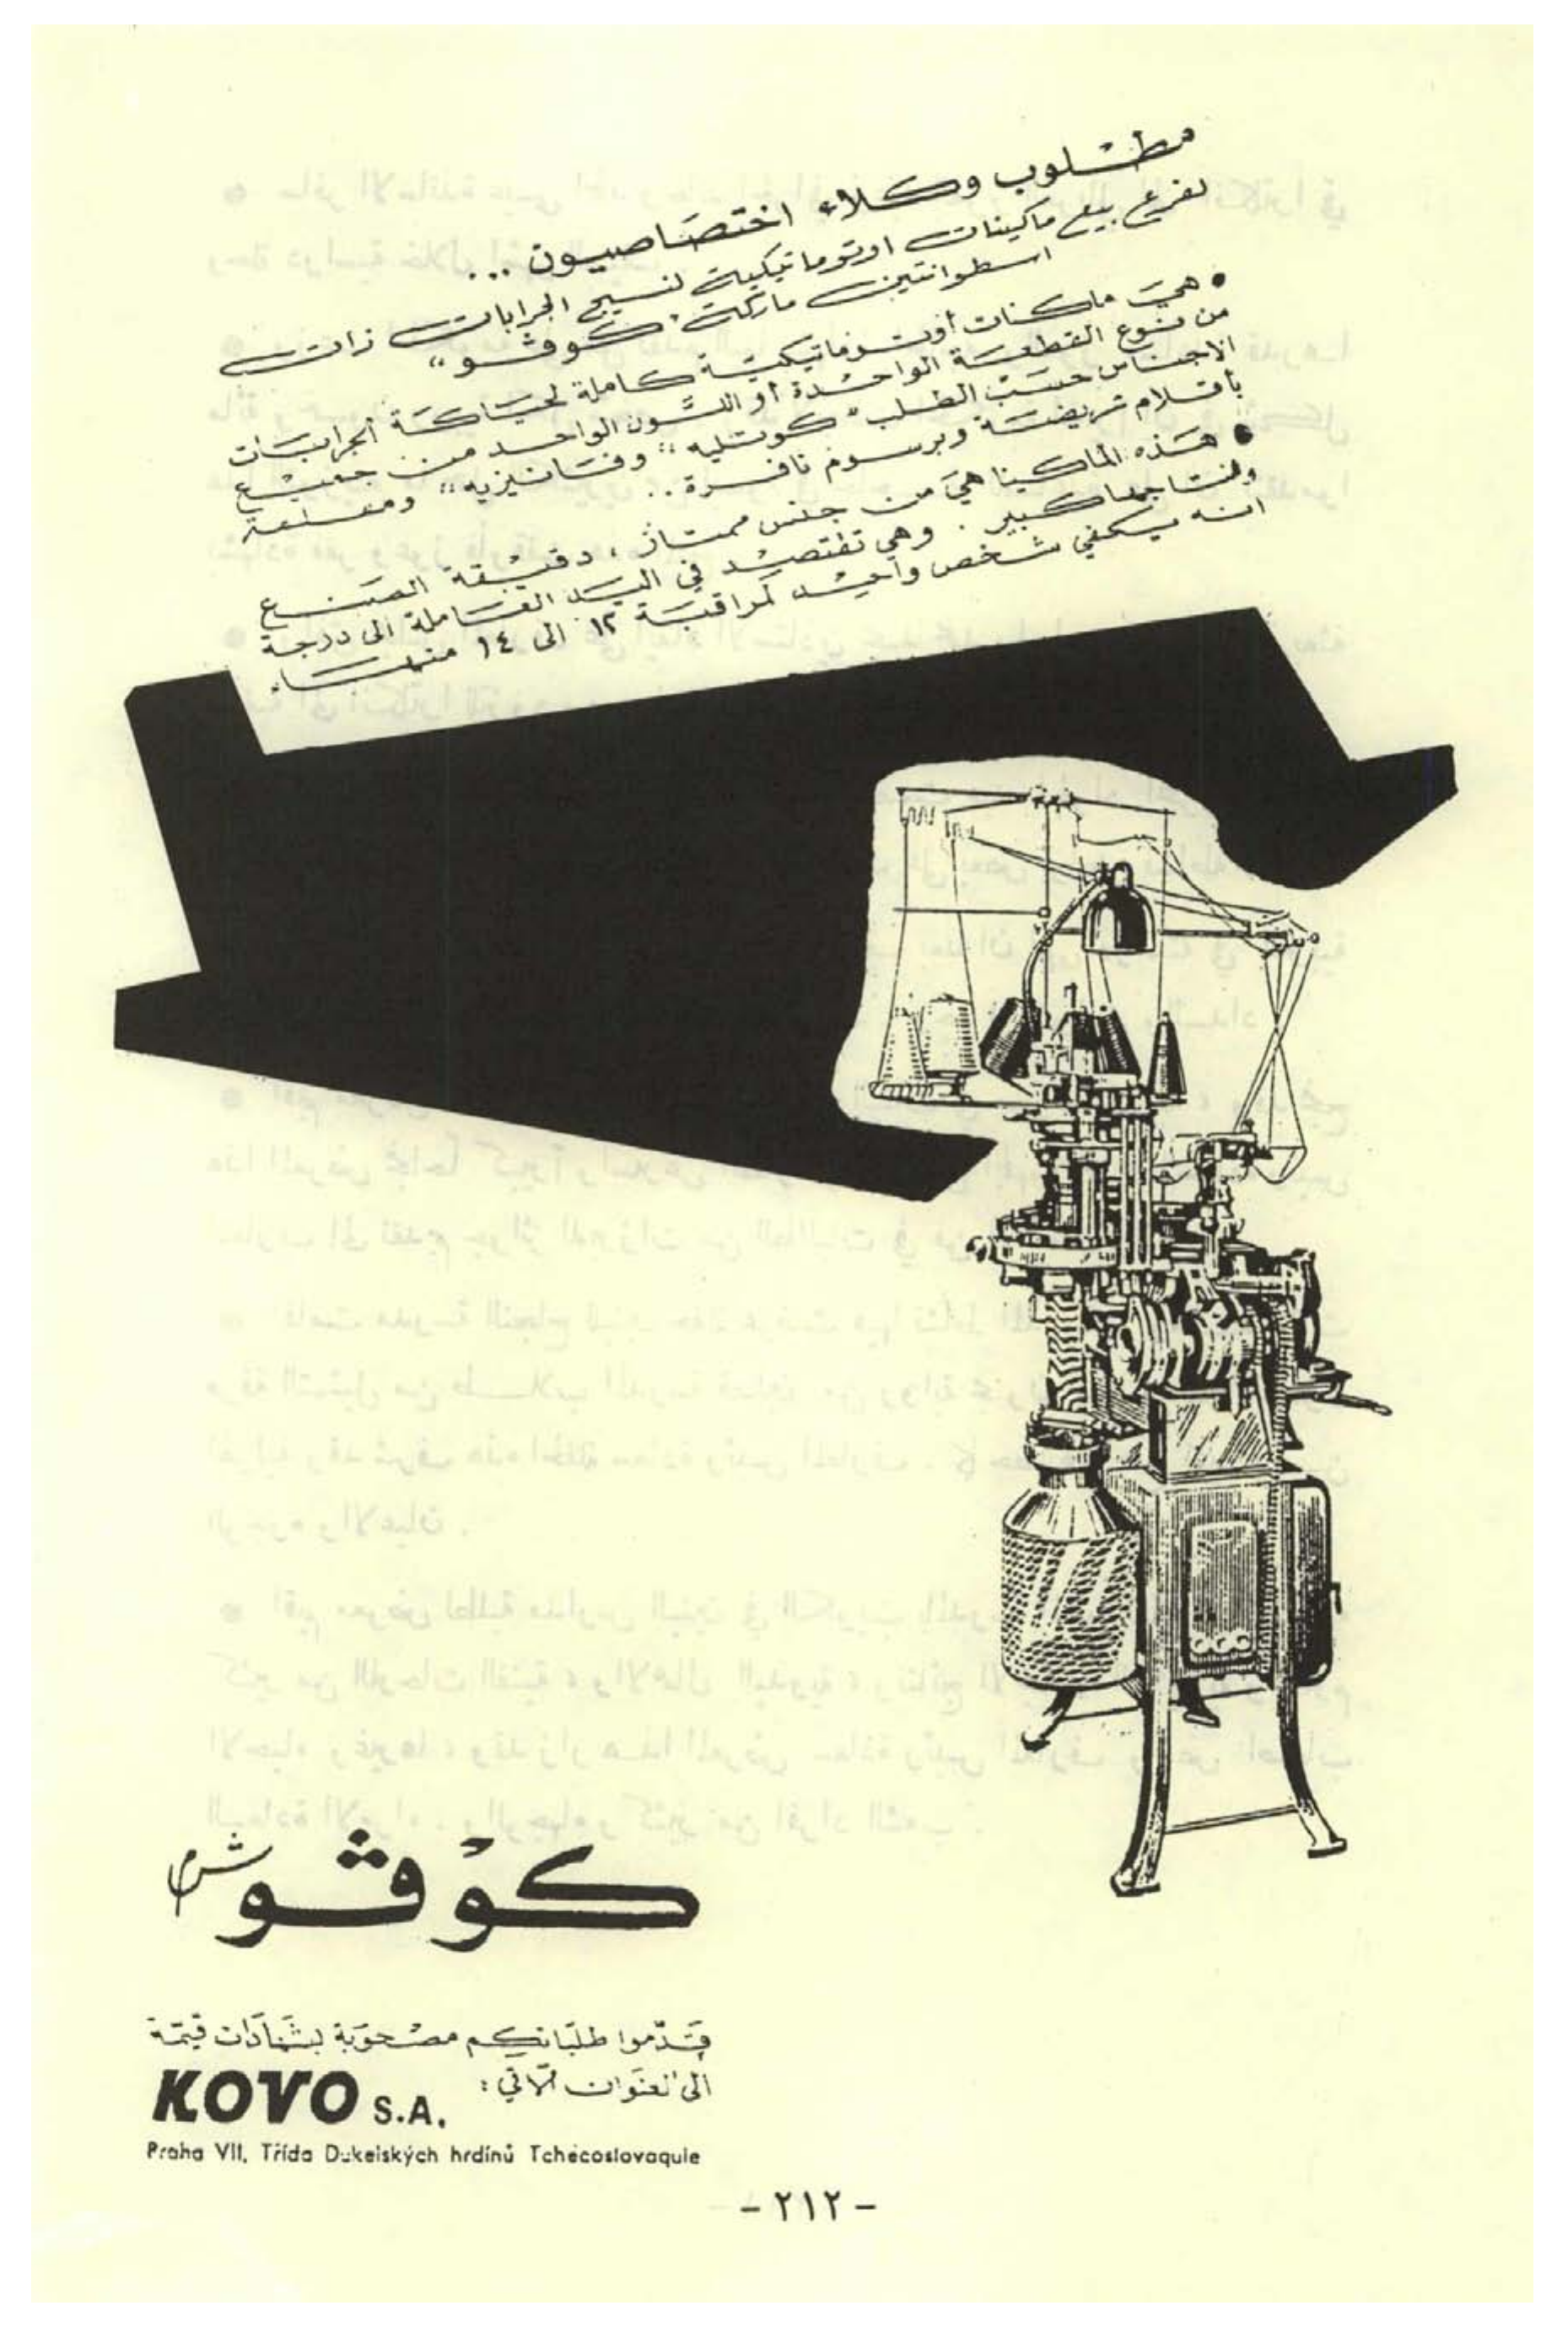 مطلوب وكلاء اختصاصيون ...
لفرع بيع ماكينات اوتوماتيكية لنسيج الجرابات ذات
اسطوانتين ماركة "كوڤو"
• هي ماكنات أوتوماتيكية كاملة لحياكة الجرابات
من نوع القطعة الواحدة أو اللون الواحد من جميع
الاجناس حسب الطلب "كوتليه" و"فانتيزيه" ومضلعة
بأقلام عريضة وبرسوم نافرة ..
• هذه الماكينا هي من جنس ممتاز ، دقيقة الصنع
وانتاجها كبير . وهي تقتصد في اليد العاملة الى درجة
انه يكفي شخص واحد لمراقبة ١٢ الى ١٤ منها .
كوڤو ش.م
قدّموا طلباتكم مصحوبة بشهادات قيّمة
الى العنوان الآتي :
KOVO S.A.
Praha VII, Třída Dukelských hrdinů Tchécoslovaquie
- ٢١٢ -